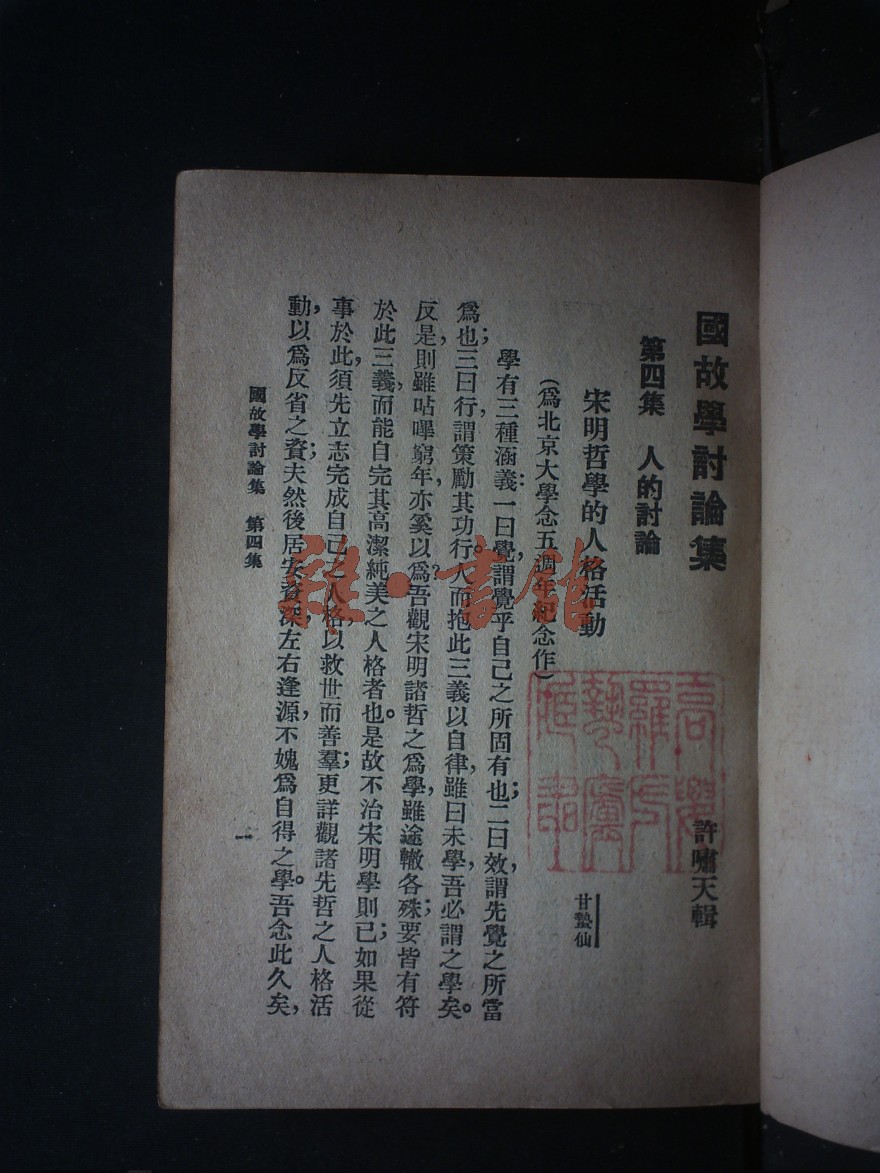 國故學討論集
許嘯天輯
第四集　人的討論
宋明哲學的人格活動
甘蟄仙
(為北京大學念五週年紀念作)
學有三種涵義:一曰覺,謂覺乎自己之所固有也;二曰效,謂先覺之所當
爲也;三曰行,謂策勵其功行。人而抱此三義以自律,雖曰未學,吾必謂之學矣。
反是,則雖呫嗶窮年,亦奚以爲?吾觀宋明諸哲之爲學,雖途轍各殊;要皆有符
於此三義,而能自完其高潔純美之人格者也。是故不治宋明學則已;如果從
事於此,須先立志完成自己之人格,以救世而善羣;更詳觀諸先哲之人格活
動,以爲反省之資;夫然後居安資深,左右逢源,不媿爲自得之學。吾念此久矣,
國故學討論集　第四集
一
雜·書館